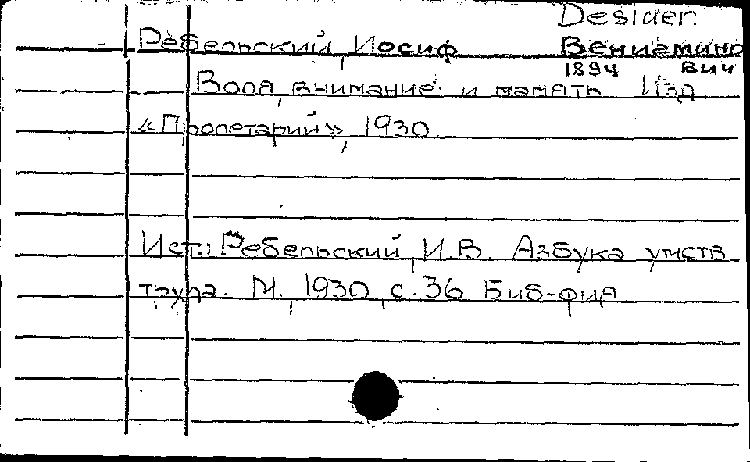 Desider.
Ребельский, Иосиф Вениамино
1894 вич
Воля, внимание и память. Изд.
«Пролетарий», 1930.
Ист.: Ребельский, И.В. Азбука умств.
труда. М., 1930, с. 36 Биб-фия